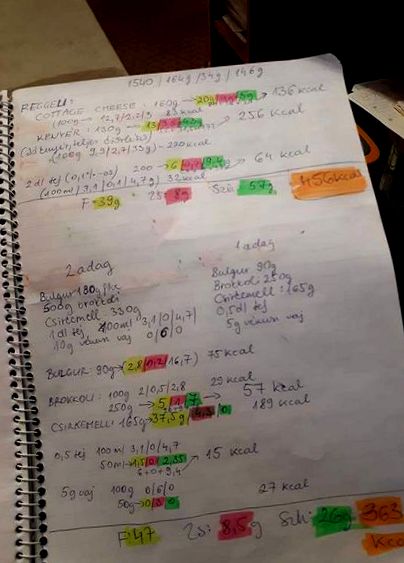 1540 / 164g / 34g / 146g
REGGELI:
COTTAGE CHEESE: 160g → 20g 5g → 136 kcal
(100g → 12,7/2,2/3 83 kcal
KENYÉR: 130g → 13 → 256 kcal
(100g 9,9/2,7/35g) - 220 kcal
2 dl tej (0,1% -os) 200 → 6 9,4 → 64 kcal
(100ml / 3,1 / 0,1 / 4,7g) 32 kcal
F: 39g ZS: 8g Szh: 57g 456 kcal
2 adag
1 adag
Bulgur 180g
Bulgur 90g
500g brokkoli
Brokkoli 250g
Csirkemell: 330g
Csirkemell: 165g
1 dl tej 100ml 3,1/0/4,7
0,5 dl tej
10g vaj 0/6/0
5g vaj
BULGUR: 90g → (2,8 / 0,2 / 16,7) 75 kcal
BROKKOLI: 100g 2/0,5/2,8 29 kcal
250g → 5 / 1 / 7 → 57 kcal
CSIRKEMELL 165g → 37,3g 4,3 / 0 189 kcal
0,5 tej 100ml 3,1/0/4,7
50ml → 1,5 / 0 / 2,35 → 15 kcal
6+0+9,4
5g vaj 100g 0/6/0 27 kcal
50g → 0 / 3 / 0
F: 47 Zs: 8,5g Szh: 26g 363 kcal